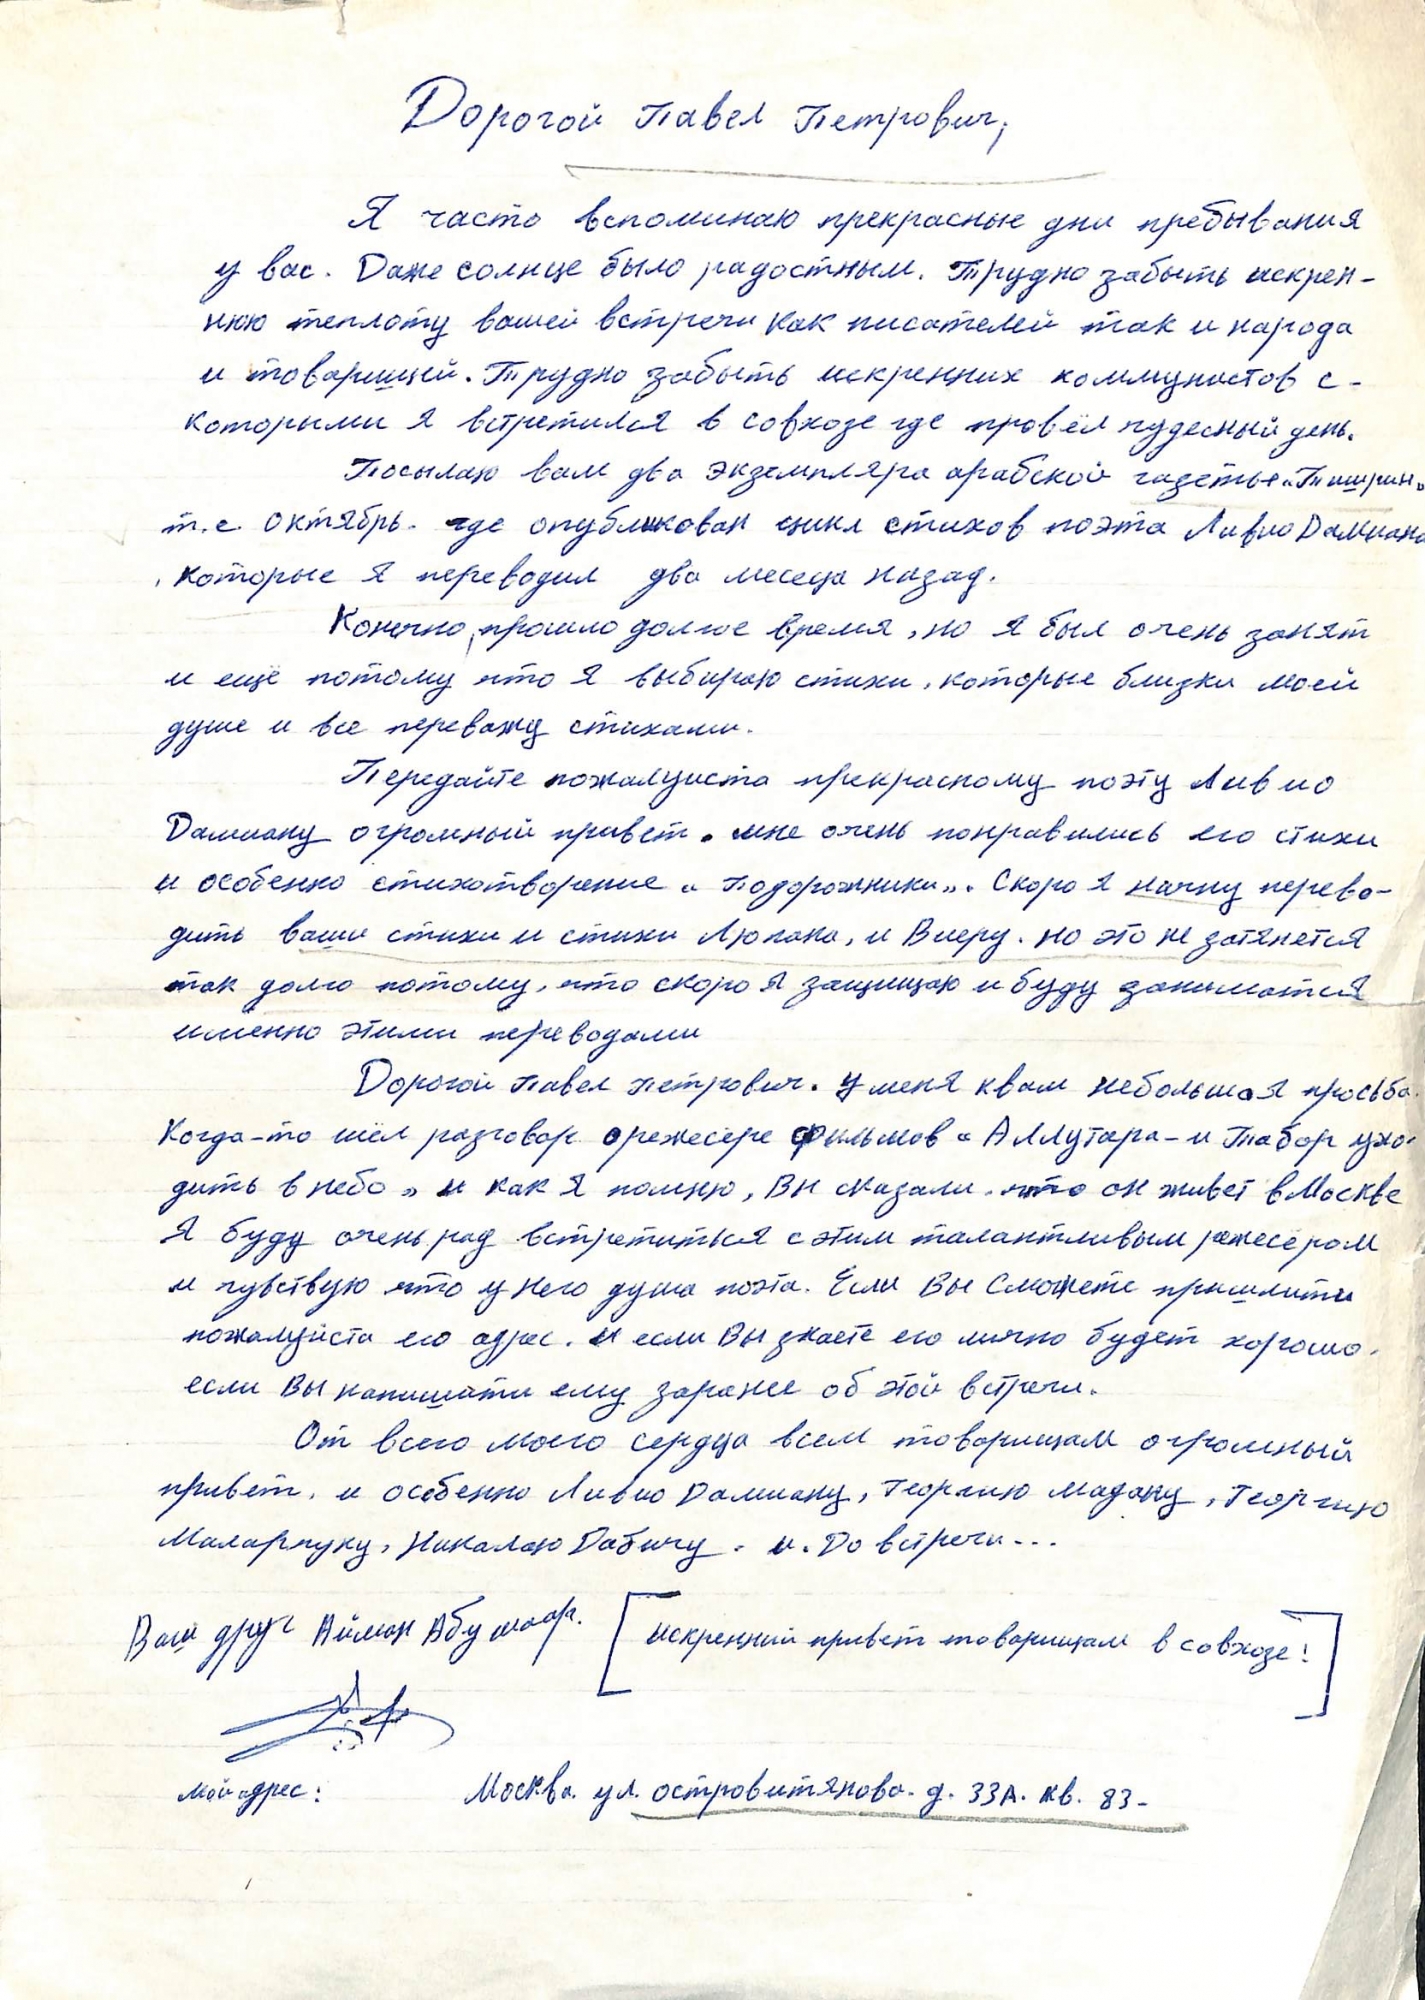 Дорогой Павел Петрович,
Я часто вспоминаю прекрасные дни пребывания
у вас. Даже солнце было радостным. Трудно забыть искрен-
нюю теплоту вашей встречи как писателей так и народа
и товарищей. Трудно забыть искренних коммунистов с-
которыми я встретился в совхозе где провёл чудесный день.
Посылаю вам два экземпляра арабской газеты "Тишрин"
т.е. октябрь. где опубликован цикл стихов поэта Ливио Дамиана
, которые я переводил два месеца назад.
Конечно, прошло долгое время, но я был очень занят
и ещё потому что я выбираю стихи, которые близки моей
душе и все перевожу стихами.
Передайте пожалуиста прекрасному поэту Ливио
Дамиану огромный привет. мне очень понравились его стихи
и особенно стихотворение "Подорожники". Скоро я начну перево-
дить ваши стихи и стихи Люпана, и Виеру. но это не затянется
так долго потому, что скоро я защищаю и буду заниматся
именно этими переводами
Дорогой Павел Петрович. У меня к вам небольшая просьба.
Когда-то шёл разговор о режесере фильмов "Аллутара - и Табор ухо-
дить в небо" и как я помню, Вы сказали. что он живет в Москве
Я буду очень рад встретиться с этим талантливым режесёром
и чувствую что у него душа поэта. Если Вы сможете пришлити
пожалуйста его адрес. и если Вы знаете его лично будет хорошо.
если Вы напишити ему заранее об этой встречи.
От всего моего сердца всем товарищам огромный
привет. и особенно Ливио Дамиану, Георгию Мадану, Георгию
Маларчуку, Николаю Дабижу. и. До встречи...
Ваш друг Айман Абу шаар.
[искренний привет товарищам в совхозе!]
мой адрес: Москва. ул. островитянова. д. 33А. кв. 83-